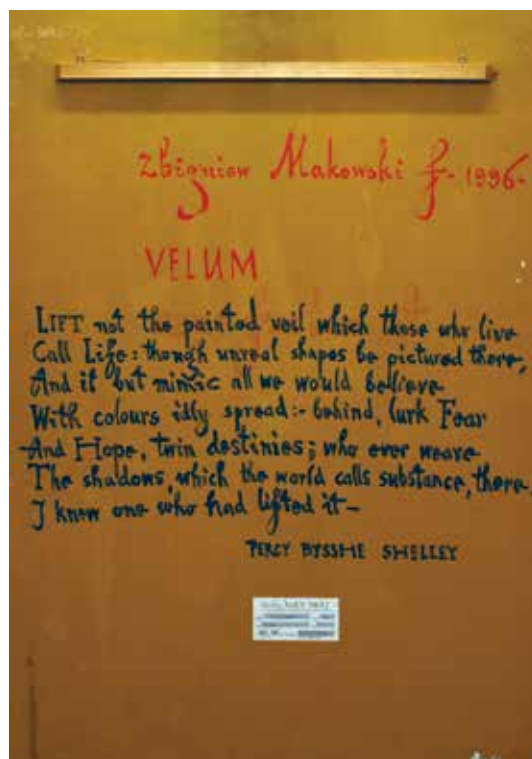 Zbigniew Makowski f- 1996-
VELUM
LIFT not the painted veil which those who live
Call Life: though unreal shapes be pictured there,
And it but mimic all we would believe
With colours idly spread:- behind, lurk Fear
And Hope, twin destinies; who ever weave
The shadows, which the world calls substance, there
I knew one who had lifted it-
PERCY BYSSHE SHELLEY